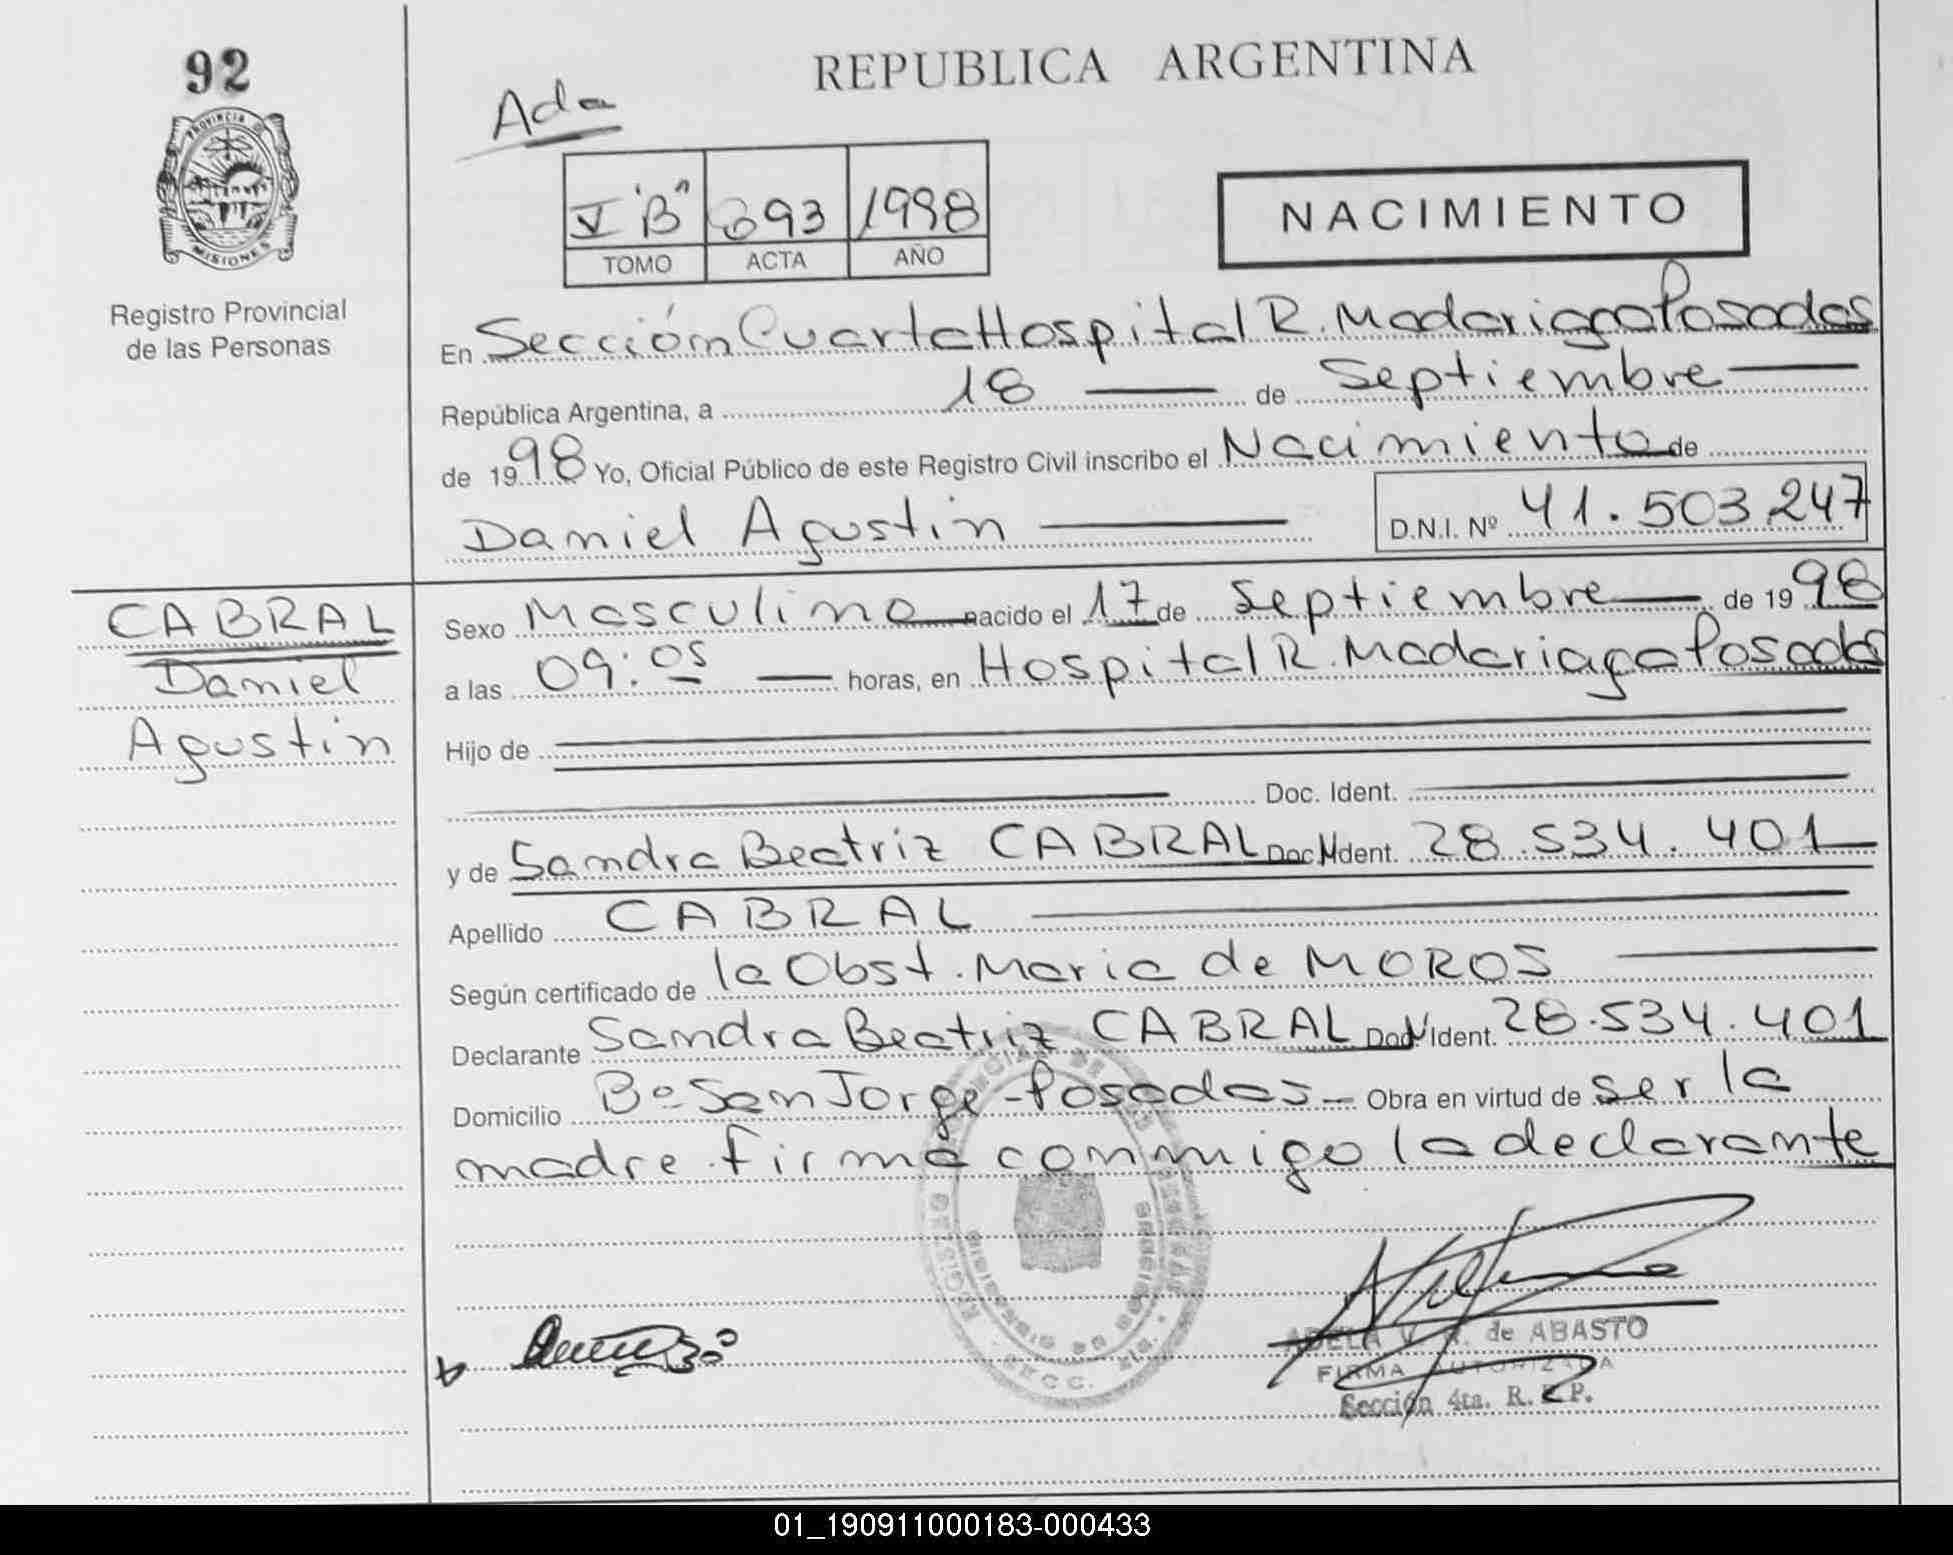 92
REPUBLICA ARGENTINA
Ada
PROVINCIA D
MISIONES
V "B" 693 1998
TOMO ACTA AÑO
NACIMIENTO
Registro Provincial
de las Personas
En Sección Cuarta Hospital R. Madariaga Posadas
República Argentina, a 18 de Septiembre
de 1998 Yo, Oficial Público de este Registro Civil inscribo el Nacimiento de
Daniel Agustin D.N.I. Nº 41.503.247
CABRAL
Daniel
Agustin
Sexo Masculino nacido el 17 de Septiembre de 1998
a las 09:05 horas, en Hospital R. Madariaga Posadas
Hijo de
Doc. Ident.
y de Sandra Beatriz CABRAL Doc. Ident. 28.534.401
Apellido CABRAL
Según certificado de la Obst. Maria de MOROS
Declarante Sandra Beatriz CABRAL Doc. Ident. 28.534.401
Domicilio Bº San Jorge - Posadas - Obra en virtud de ser la
madre. firma conmigo la declarante
ADELA V. de ABASTO
FIRMA AUTORIZADA
Sección 4ta. R. P.
01_190911000183-000433